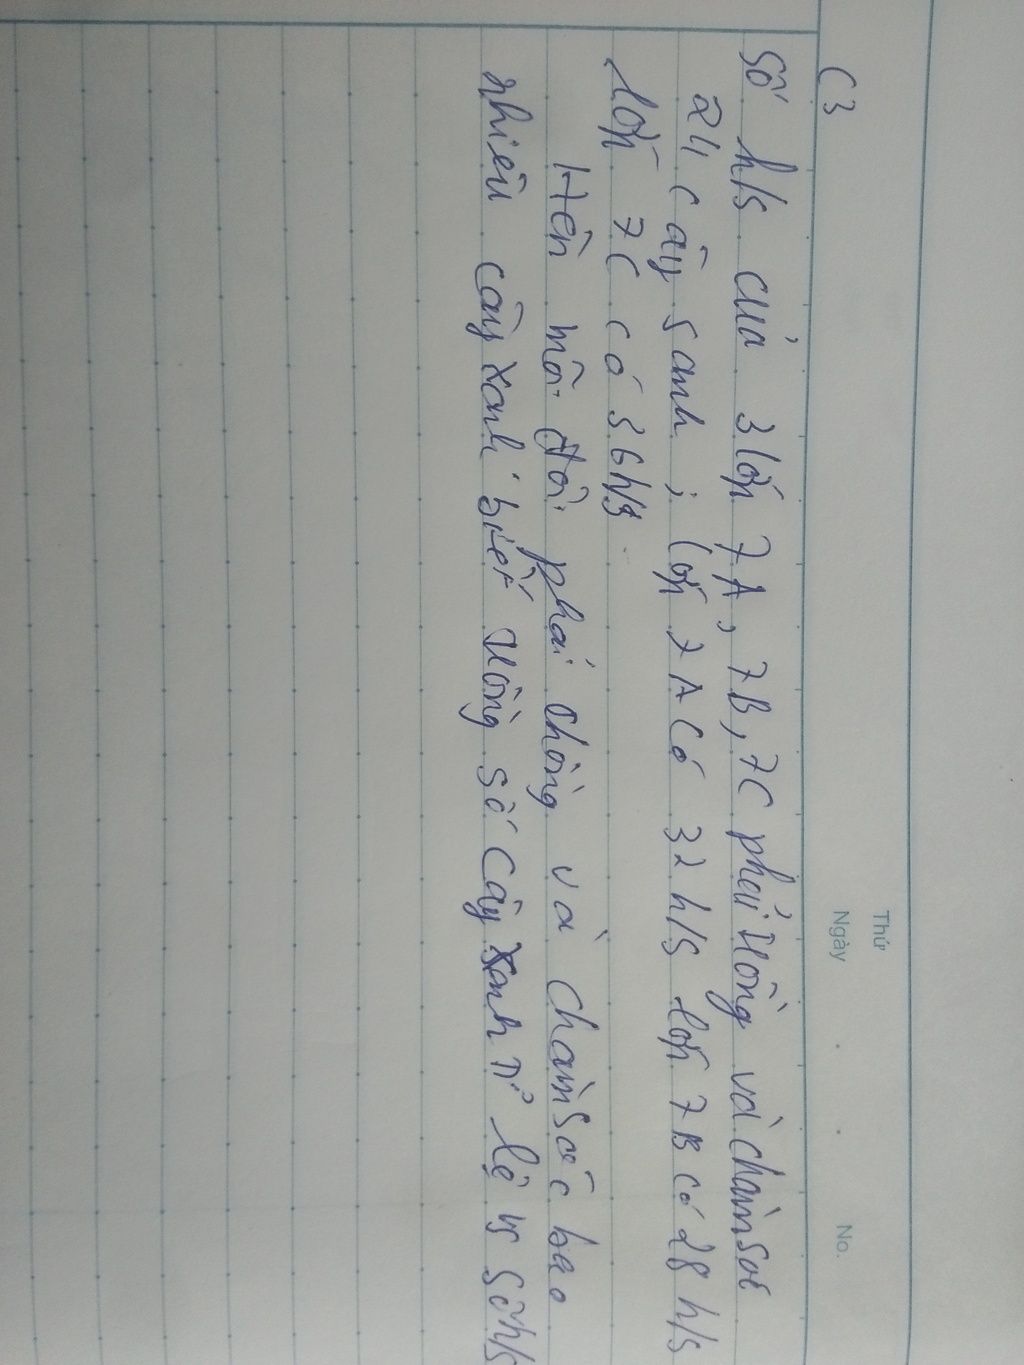 Thứ
Ngày . . No.
C3
Số h/s của 3 lớp 7A, 7B, 7C phải trồng và chăm sóc
24 cây sanh ; lớp 7A có 32 h/s lớp 7B có 28 h/s
lớp 7C có 36 h/s
Hỏi mỗi phải và chăm sóc bao
nhiêu cây xanh biết trồng số cây xanh tỉ lệ số h/s